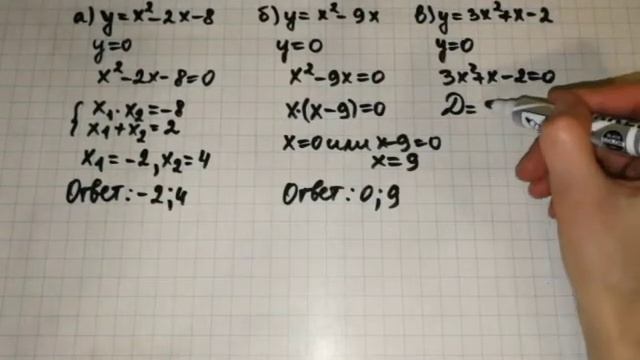 а) y=x²-2x-8
y=0
x²-2x-8=0
{ x₁·x₂=-8
x₁+x₂=2
x₁=-2, x₂=4
Ответ: -2; 4
б) y=x²-9x
y=0
x²-9x=0
x·(x-9)=0
x=0 или x-9=0
x=9
Ответ: 0; 9
в) y=3x²+x-2
y=0
3x²+x-2=0
D=